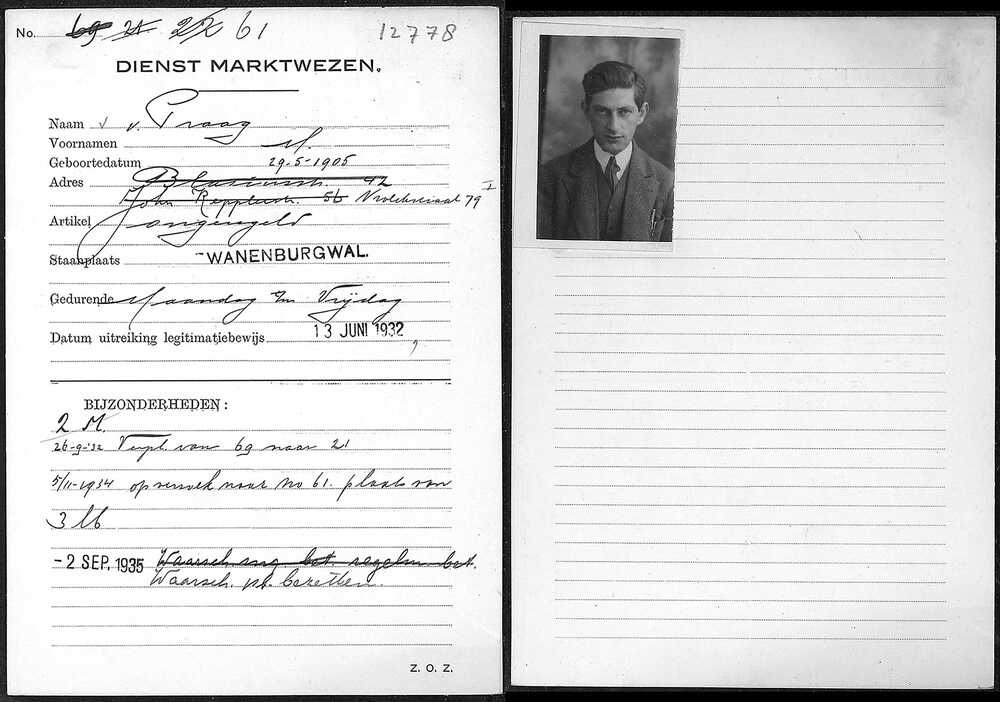 No. 69 21 22 61 12778
DIENST MARKTWEZEN.
Naam v. Praag
Voornamen M.
Geboortedatum 29-5-1905
Adres Blasiusstr. 42
John Kepplerstr. 56 Vrolikstraat 79 I
Artikel ongeregeld
Staanplaats -WANENBURGWAL.
Gedurende Maandag t/m Vrijdag
Datum uitreiking legitimatiebewijs 13 JUNI 1932
BIJZONDERHEDEN:
2 M.
26-9-'32 Verpl. van 69 naar 21
5/11-1934 op verzoek naar no 61. plaats van
3 M
-2 SEP. 1935 Waarsch. bet. regelm. bet.
Waarsch. pl. bezetten.
Z. O. Z.